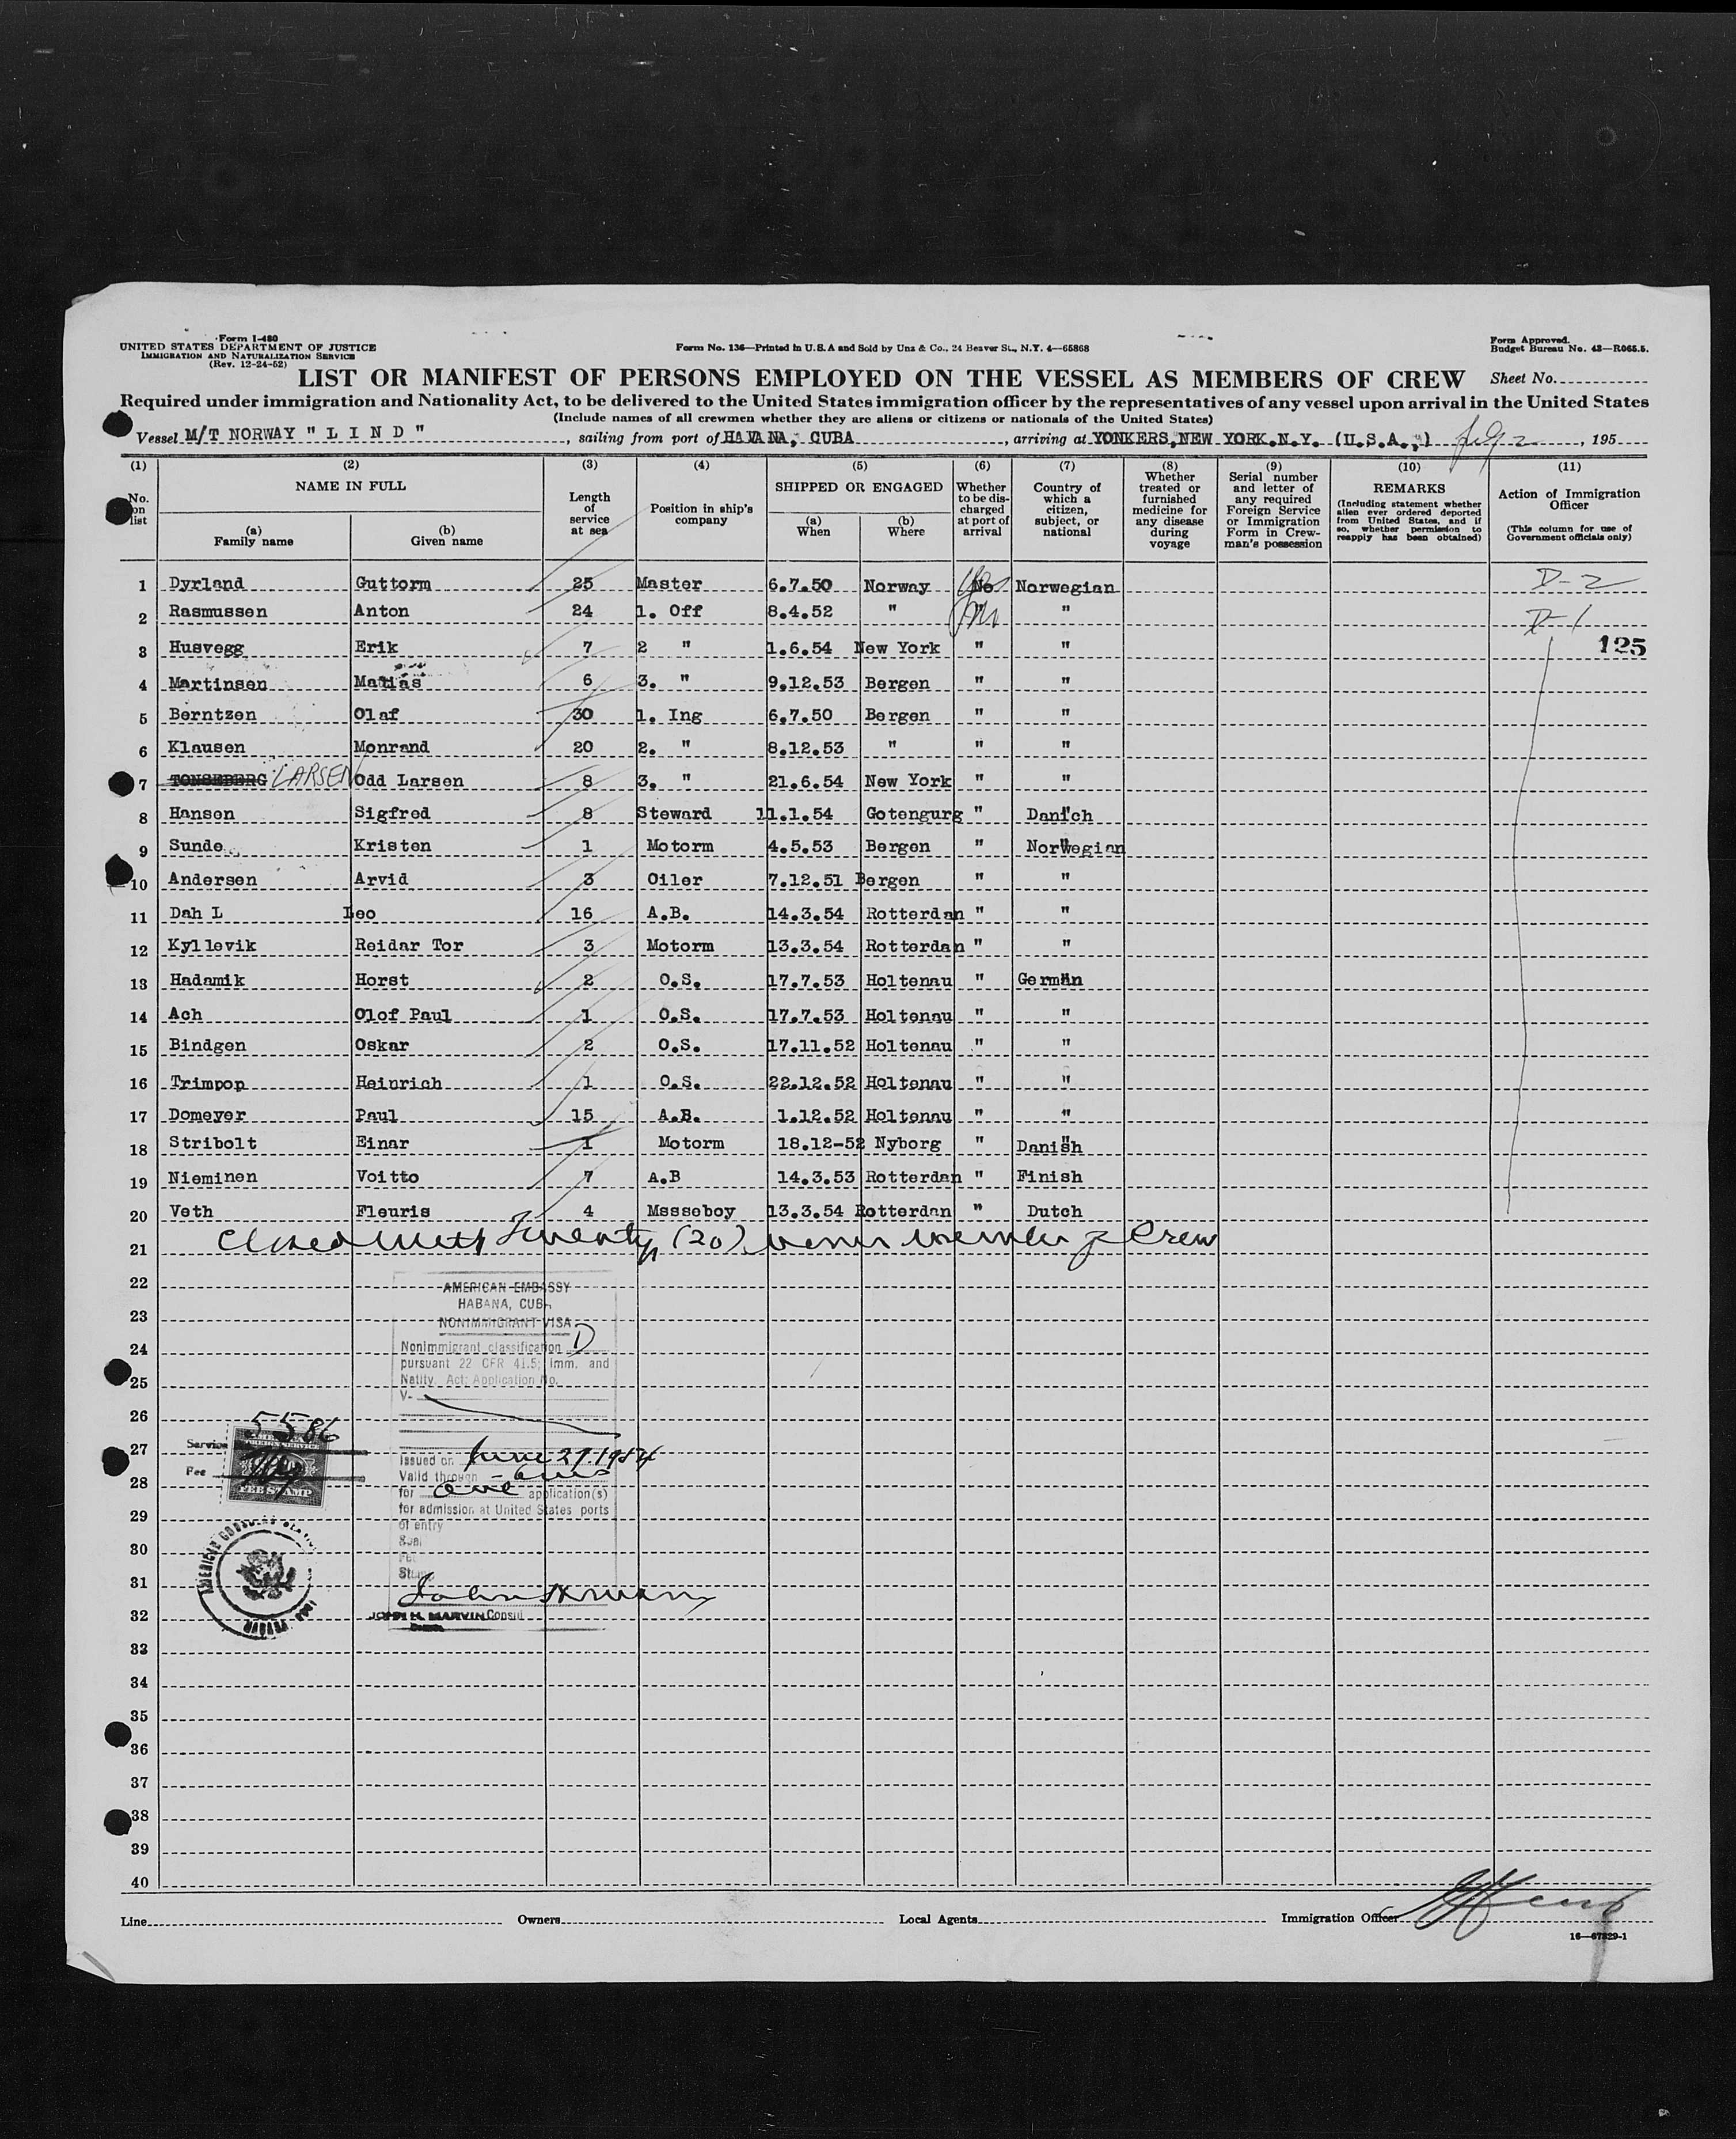 Form I-480
UNITED STATES DEPARTMENT OF JUSTICE
IMMIGRATION AND NATURALIZATION SERVICE
(Rev. 12-24-52)
Form No. 136—Printed in U.S.A and Sold by Unz & Co., 24 Beaver St., N.Y. 4—65868
Form Approved.
Budget Bureau No. 43—R065.5.
LIST OR MANIFEST OF PERSONS EMPLOYED ON THE VESSEL AS MEMBERS OF CREW Sheet No.
Required under immigration and Nationality Act, to be delivered to the United States immigration officer by the representatives of any vessel upon arrival in the United States
(Include names of all crewmen whether they are aliens or citizens or nationals of the United States)
Vessel M/T NORWAY " L I N D " , sailing from port of HAVANA, CUBA , arriving at YONKERS, NEW YORK.N.Y. (U.S.A.,) July 2 , 195
(1) No. on list
(2) NAME IN FULL
(a) Family name
(b) Given name
(3) Length of service at sea
(4) Position in ship's company
(5) SHIPPED OR ENGAGED
(a) When
(b) Where
(6) Whether to be discharged at port of arrival
(7) Country of which a citizen, subject, or national
(8) Whether treated or furnished medicine for any disease during voyage
(9) Serial number and letter of any required Foreign Service or Immigration Form in Crewman's possession
(10) REMARKS (Including statement whether alien ever ordered deported from United States, and if so, whether permission to reapply has been obtained)
(11) Action of Immigration Officer (This column for use of Government officials only)
1 Dyrland Guttorm 25 Master 6.7.50 Norway No Norwegian D-2
2 Rasmussen Anton 24 1. Off 8.4.52 " " " D-1
3 Husvegg Erik 7 2 " 1.6.54 New York " " 125
4 Martinsen Matias 6 3. " 9.12.53 Bergen " "
5 Berntzen Olaf 30 1. Ing 6.7.50 Bergen " "
6 Klausen Monrand 20 2. " 8.12.53 " " "
7 TONSEBERG LARSEN Odd Larsen 8 3. " 21.6.54 New York " "
8 Hansen Sigfred 8 Steward 11.1.54 Gotengurg " Danich
9 Sunde Kristen 1 Motorm 4.5.53 Bergen " Norwegian
10 Andersen Arvid 3 Oiler 7.12.51 Bergen " "
11 Dah L Leo 16 A.B. 14.3.54 Rotterdan " "
12 Kyllevik Reidar Tor 3 Motorm 13.3.54 Rotterdan " "
13 Hadamik Horst 2 O.S. 17.7.53 Holtenau " German
14 Ach Olof Paul 1 O.S. 17.7.53 Holtenau " "
15 Bindgen Oskar 2 O.S. 17.11.52 Holtenau " "
16 Trimpop Heinrich 1 O.S. 22.12.52 Holtenau " "
17 Domeyer Paul 15 A.B. 1.12.52 Holtenau " "
18 Stribolt Einar 1 Motorm 18.12-52 Nyborg " Danish
19 Nieminen Voitto 7 A.B 14.3.53 Rotterdan " Finish
20 Veth Fleuris 4 Mssseboy 13.3.54 Rotterdan " Dutch
21 Closed with Twenty (20) member of Crew
22
AMERICAN EMBASSY
HABANA, CUBA
23
NONIMMIGRANT VISA
24
Nonimmigrant classification D
pursuant 22 CFR 41.5; Imm. and
25
Natlty. Act; Application No.
V-
26
5586
27
Service
Issued on June 29.1954
Fee
Valid through
28
FEE STAMP
for one application(s)
for admission at United States ports
29
of entry
30
Seal
Fee
31
Stamp
AMERICAN
HABANA
32
JOHN H. MARVIN Consul
33
34
35
36
37
38
39
40
Line
Owners
Local Agents
Immigration Officer
16—67829-1